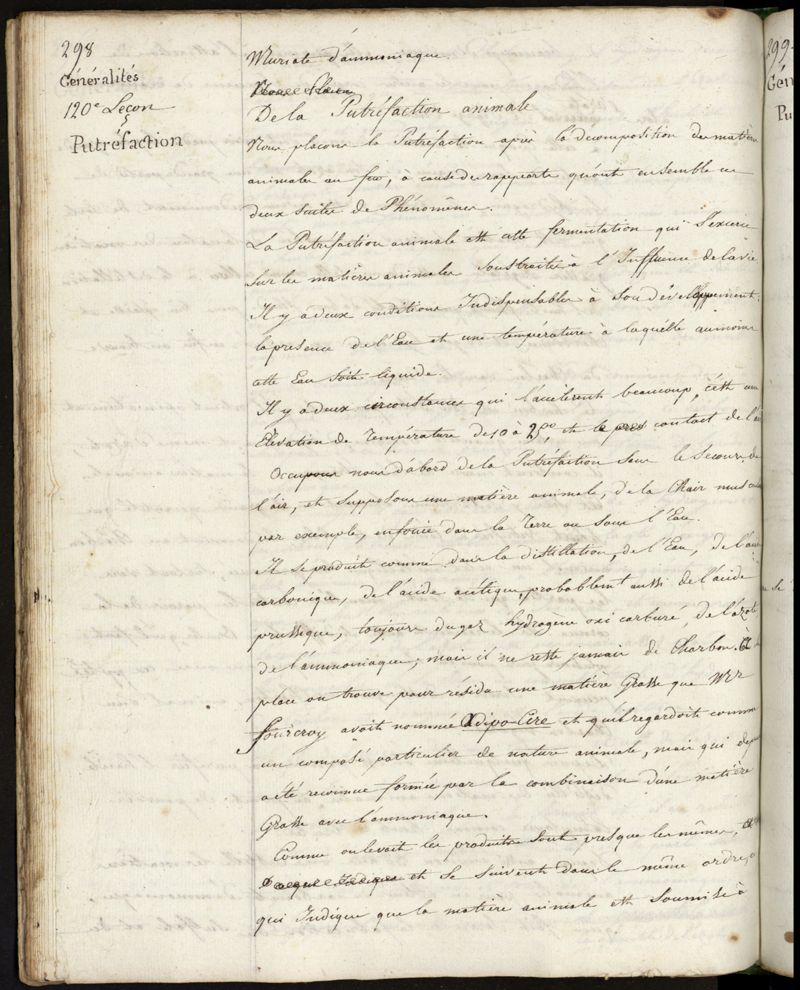 298
Généralités
120e Leçon
Putréfaction
Muriate d'ammoniaque.
De la Putréfaction animale
Nous placons la Putréfaction après la décomposition des matières
animales au feu, a cause des rapports qu'ont ensemble ces
deux suites de Phénomènes.
La Putréfaction animale est cette fermentation qui s'exerce
sur les matières animales soustraites à l'Influence de la vie
Il y a deux conditions Indispensables à son développement:
la présence de l'Eau et une température à laquelle au moins
cette Eau soit liquide.
Il y a deux circonstances qui l'accélèrent beaucoup, c'est une
Elévation de Température de 10 a 25°, et le contact de l'air
Occupons nous d'abord de la Putréfaction sans le secours de
l'air, et supposons une matière animale, de la Chair musculaire
par exemple, enfouie dans la Terre ou sous l'Eau.
Il se produit comme dans la distillation, de l'Eau, de l'acide
carbonique, de l'acide acétique, probablement aussi de l'acide
prussique, toujours du gaz hydrogène oxi carburé, de l'azote
de l'ammoniaque; mais il ne reste jamais de Charbon. A la
place on trouve pour résidu une matière Grasse que Mr
fourcroy avoit nommée Adipo-Cire et qu'il regardoit comme
un composé particulier de nature animale, mais qui depuis
a été reconnue formée par la combinaison d'une matière
Grasse avec l'ammoniaque.
Comme on le voit les produits sont presque les mêmes,
et se suivent dans le même ordre,
qui Indique que la matière animale est soumise à
299